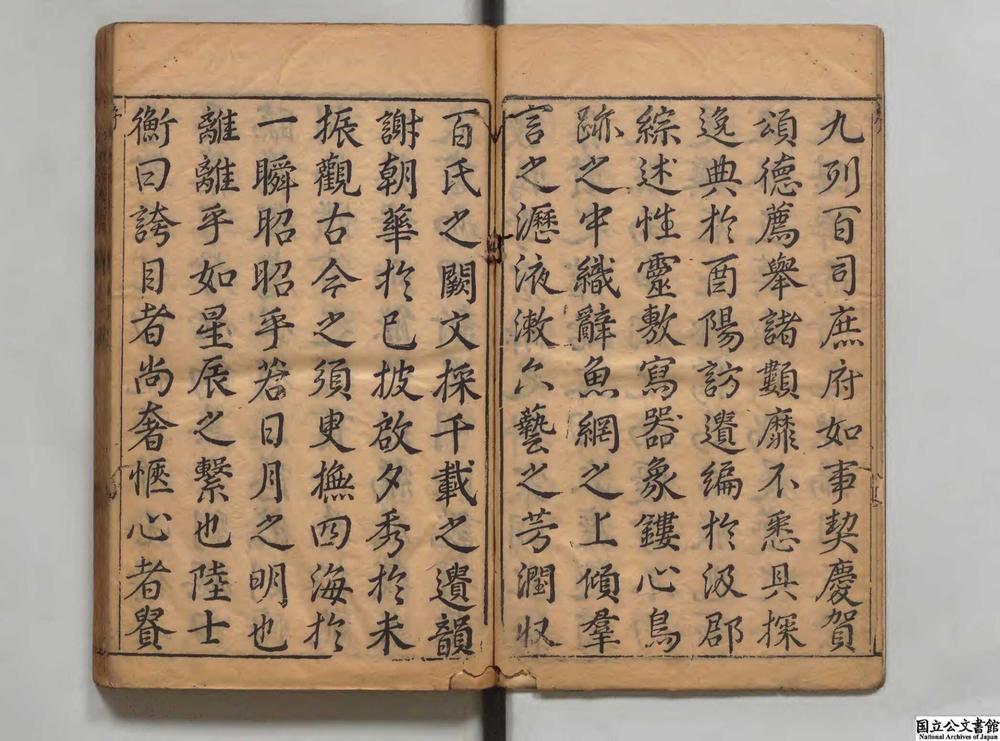 九列百司庶府如事契慶賀
頌德薦舉諸顥靡不悉具探
逸典於酉陽訪遺編於汲郡
綜述性靈敷寫器象鏤心鳥
跡之中織辭魚網之上傾羣
言之瀝液漱六藝之芳潤収
百氏之闕文採千載之遺韻
謝朝華於已披啟夕秀於未
振觀古今之須臾撫四海於
一瞬昭昭乎若日月之明也
離離乎如星辰之繫也陸士
衡曰誇目者尚奢愜心者貴
国立公文書館
National Archives of Japan